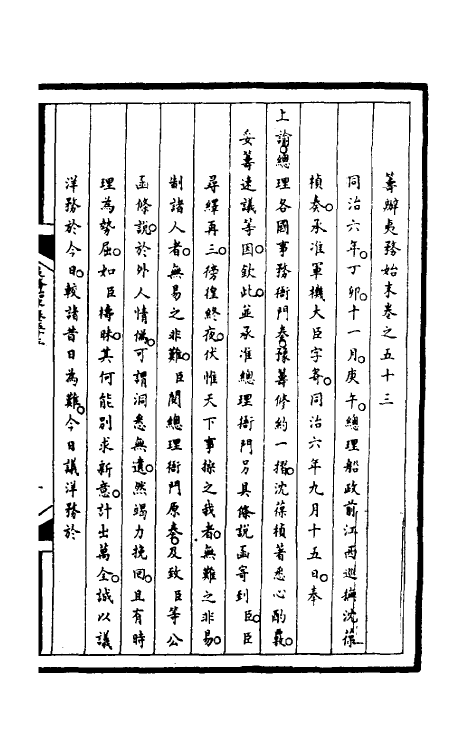 籌辦夷務始末卷之五十三
同治六年。丁卯。十一月。庚午。總理船政前江西巡撫沈葆
楨奏。承准軍機大臣字寄。同治六年九月十五日。奉
上諭。總理各國事務衙門奏豫籌修約一摺。沈葆楨著悉心酌覈。
妥籌速議等因。欽此。並承准總理衙門另具條說函寄到臣。臣
尋繹再三。徬徨終夜。伏惟天下事操之我者。無難之非易。
制諸人者。無易之非難。臣閱總理衙門原奏。及致臣等公
函條說。於外人情偽。可謂洞悉無遺。然竭力挽回。且有時
理為勢屈。如臣檮昧。其何能別求新意。計出萬全。誠以議
洋務於今日。較諸昔日為難。今日議洋務於